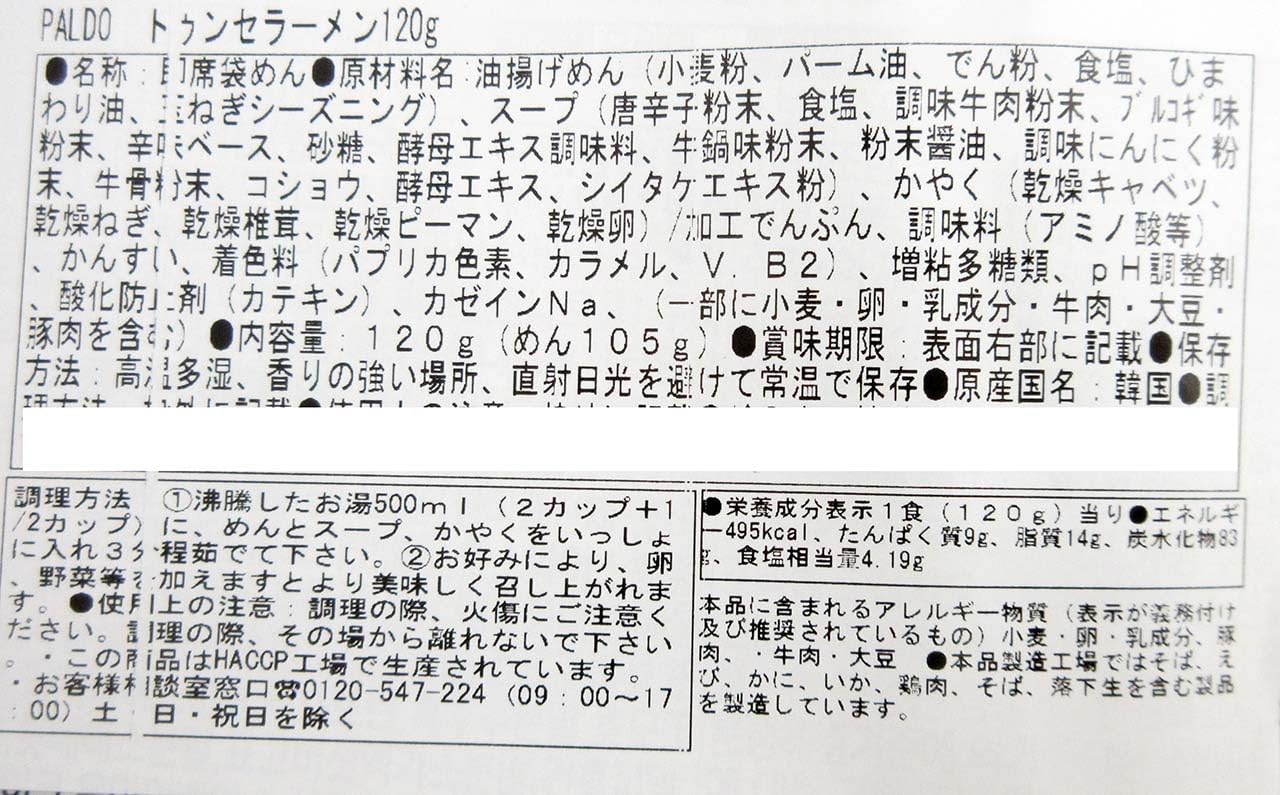 PALDO トゥンセラーメン120g
●名称：即席袋めん●原材料名：油揚げめん（小麦粉、パーム油、でん粉、食塩、ひま
わり油、玉ねぎシーズニング）、スープ（唐辛子粉末、食塩、調味牛肉粉末、プルコギ味
粉末、辛味ベース、砂糖、酵母エキス調味料、牛鍋味粉末、粉末醤油、調味にんにく粉
末、牛骨粉末、コショウ、酵母エキス、シイタケエキス粉）、かやく（乾燥キャベツ、
乾燥ねぎ、乾燥椎茸、乾燥ピーマン、乾燥卵）/加工でんぷん、調味料（アミノ酸等）
、かんすい、着色料（パプリカ色素、カラメル、V．B2）、増粘多糖類、pH調整剤
、酸化防止剤（カテキン）、カゼインNa、（一部に小麦・卵・乳成分・牛肉・大豆・
豚肉を含む）●内容量：120g（めん105g）●賞味期限：表面右部に記載●保存
方法：高温多湿、香りの強い場所、直射日光を避けて常温で保存●原産国名：韓国●調
調理方法 ①沸騰したお湯500ml（2カップ+1
/2カップ）に、めんとスープ、かやくをいっしょ
に入れ3分程茹でて下さい。②お好みにより、卵
、野菜等を加えますとより美味しく召し上がれま
す。●使用上の注意：調理の際、火傷にご注意く
ださい。調理の際、その場から離れないで下さい
。・この商品はHACCP工場で生産されています。
・お客様相談室窓口☎0120-547-224（09：00～17
：00）土・日・祝日を除く
●栄養成分表示1食（120g）当り●エネルギ
ー495kcal、たんぱく質9g、脂質14g、炭水化物83
g、食塩相当量4.19g
本品に含まれるアレルギー物質（表示が義務付け
及び推奨されているもの）小麦・卵・乳成分、豚
肉、・牛肉・大豆 ●本品製造工場ではそば、え
び、かに、いか、鶏肉、そば、落下生を含む製品
を製造しています。